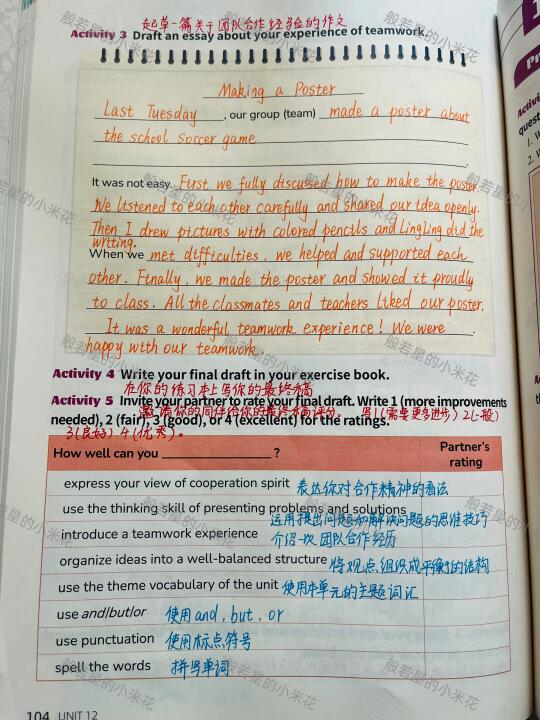 起草一篇关于团队合作经验的作文
Activity 3 Draft an essay about your experience of teamwork.
Making a Poster
Last Tuesday, our group (team) made a poster about
the school soccer game
It was not easy. First, we fully discussed how to make the poster.
We listened to each other carefully and shared our idea openly.
Then I drew pictures with colored pencils and Lingling did the
writing.
When we met difficulties, we helped and supported each
other. Finally, we made the poster and showed it proudly
to class. All the classmates and teachers liked our poster.
It was a wonderful teamwork experience! We were
happy with our teamwork.
Activity 4 Write your final draft in your exercise book.
在你的练习本上写你的最终稿
Activity 5 Invite your partner to rate your final draft. Write 1 (more improvements
邀请你的同伴给你的最终稿评分。 写1(需要更多进步) 2(一般)
needed), 2 (fair), 3 (good), or 4 (excellent) for the ratings.
3(良好) 4(优秀)。
How well can you ?
Partner's
rating
express your view of cooperation spirit 表达你对合作精神的看法
use the thinking skill of presenting problems and solutions
运用提出问题和解决问题的思维技巧
introduce a teamwork experience 介绍一次团队合作经历
organize ideas into a well-balanced structure 将观点组织成平衡的结构
use the theme vocabulary of the unit 使用本单元的主题词汇
use and/but/or 使用and, but, or
use punctuation 使用标点符号
spell the words 拼写单词
104 UNIT 12
般若星的小米花